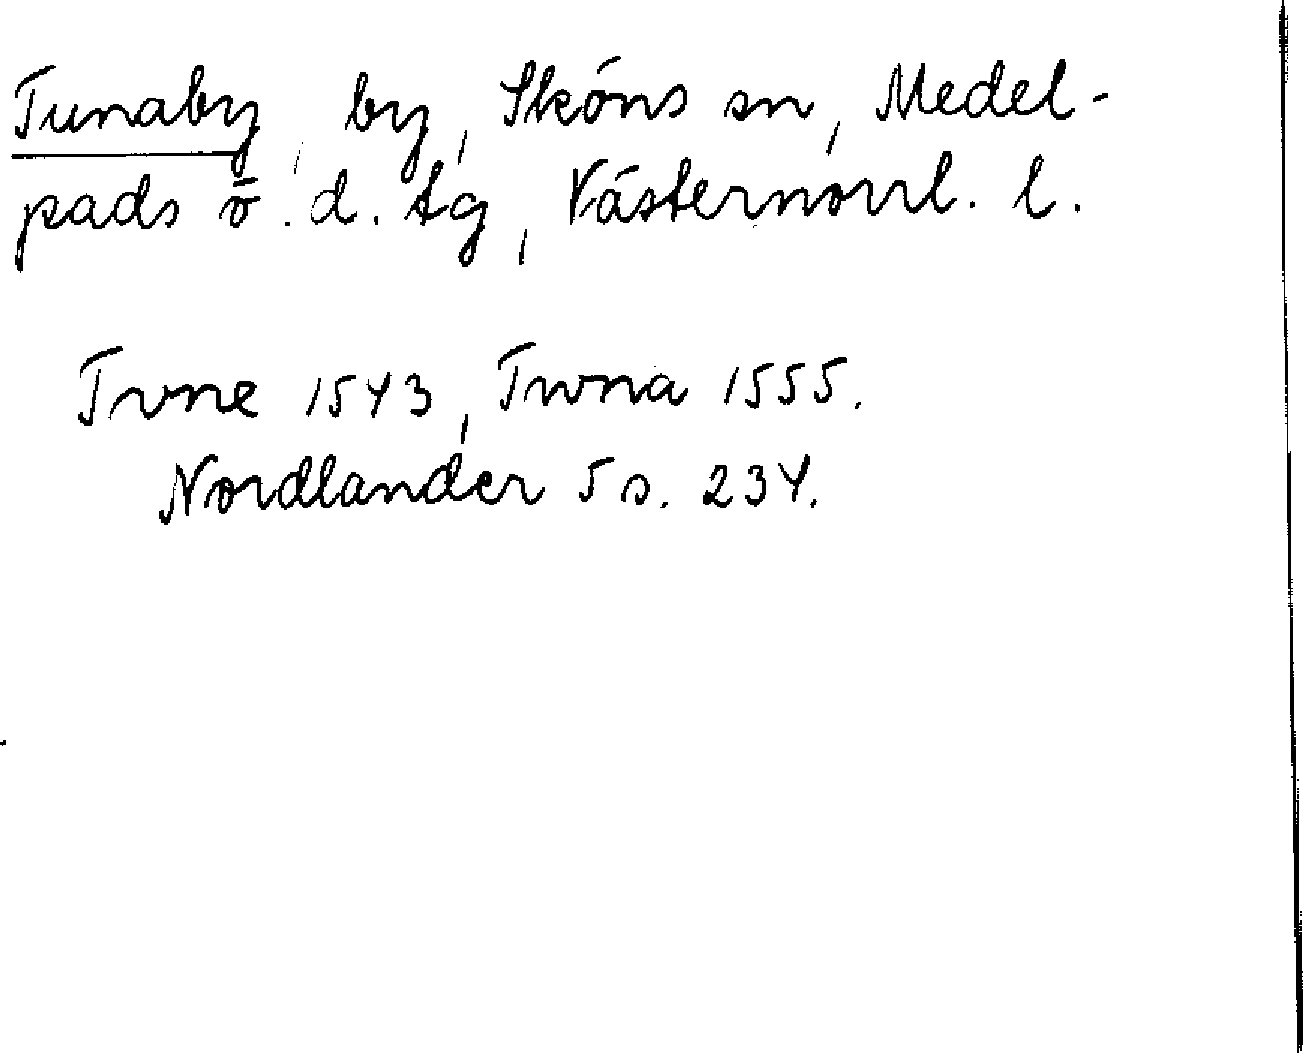 Tunaby, by, Sköns sn, Medel-
pads ö. d. tg, Västernorrl. l.
Tvne 1543, Twna 1555.
Nordlander 5 s. 234.